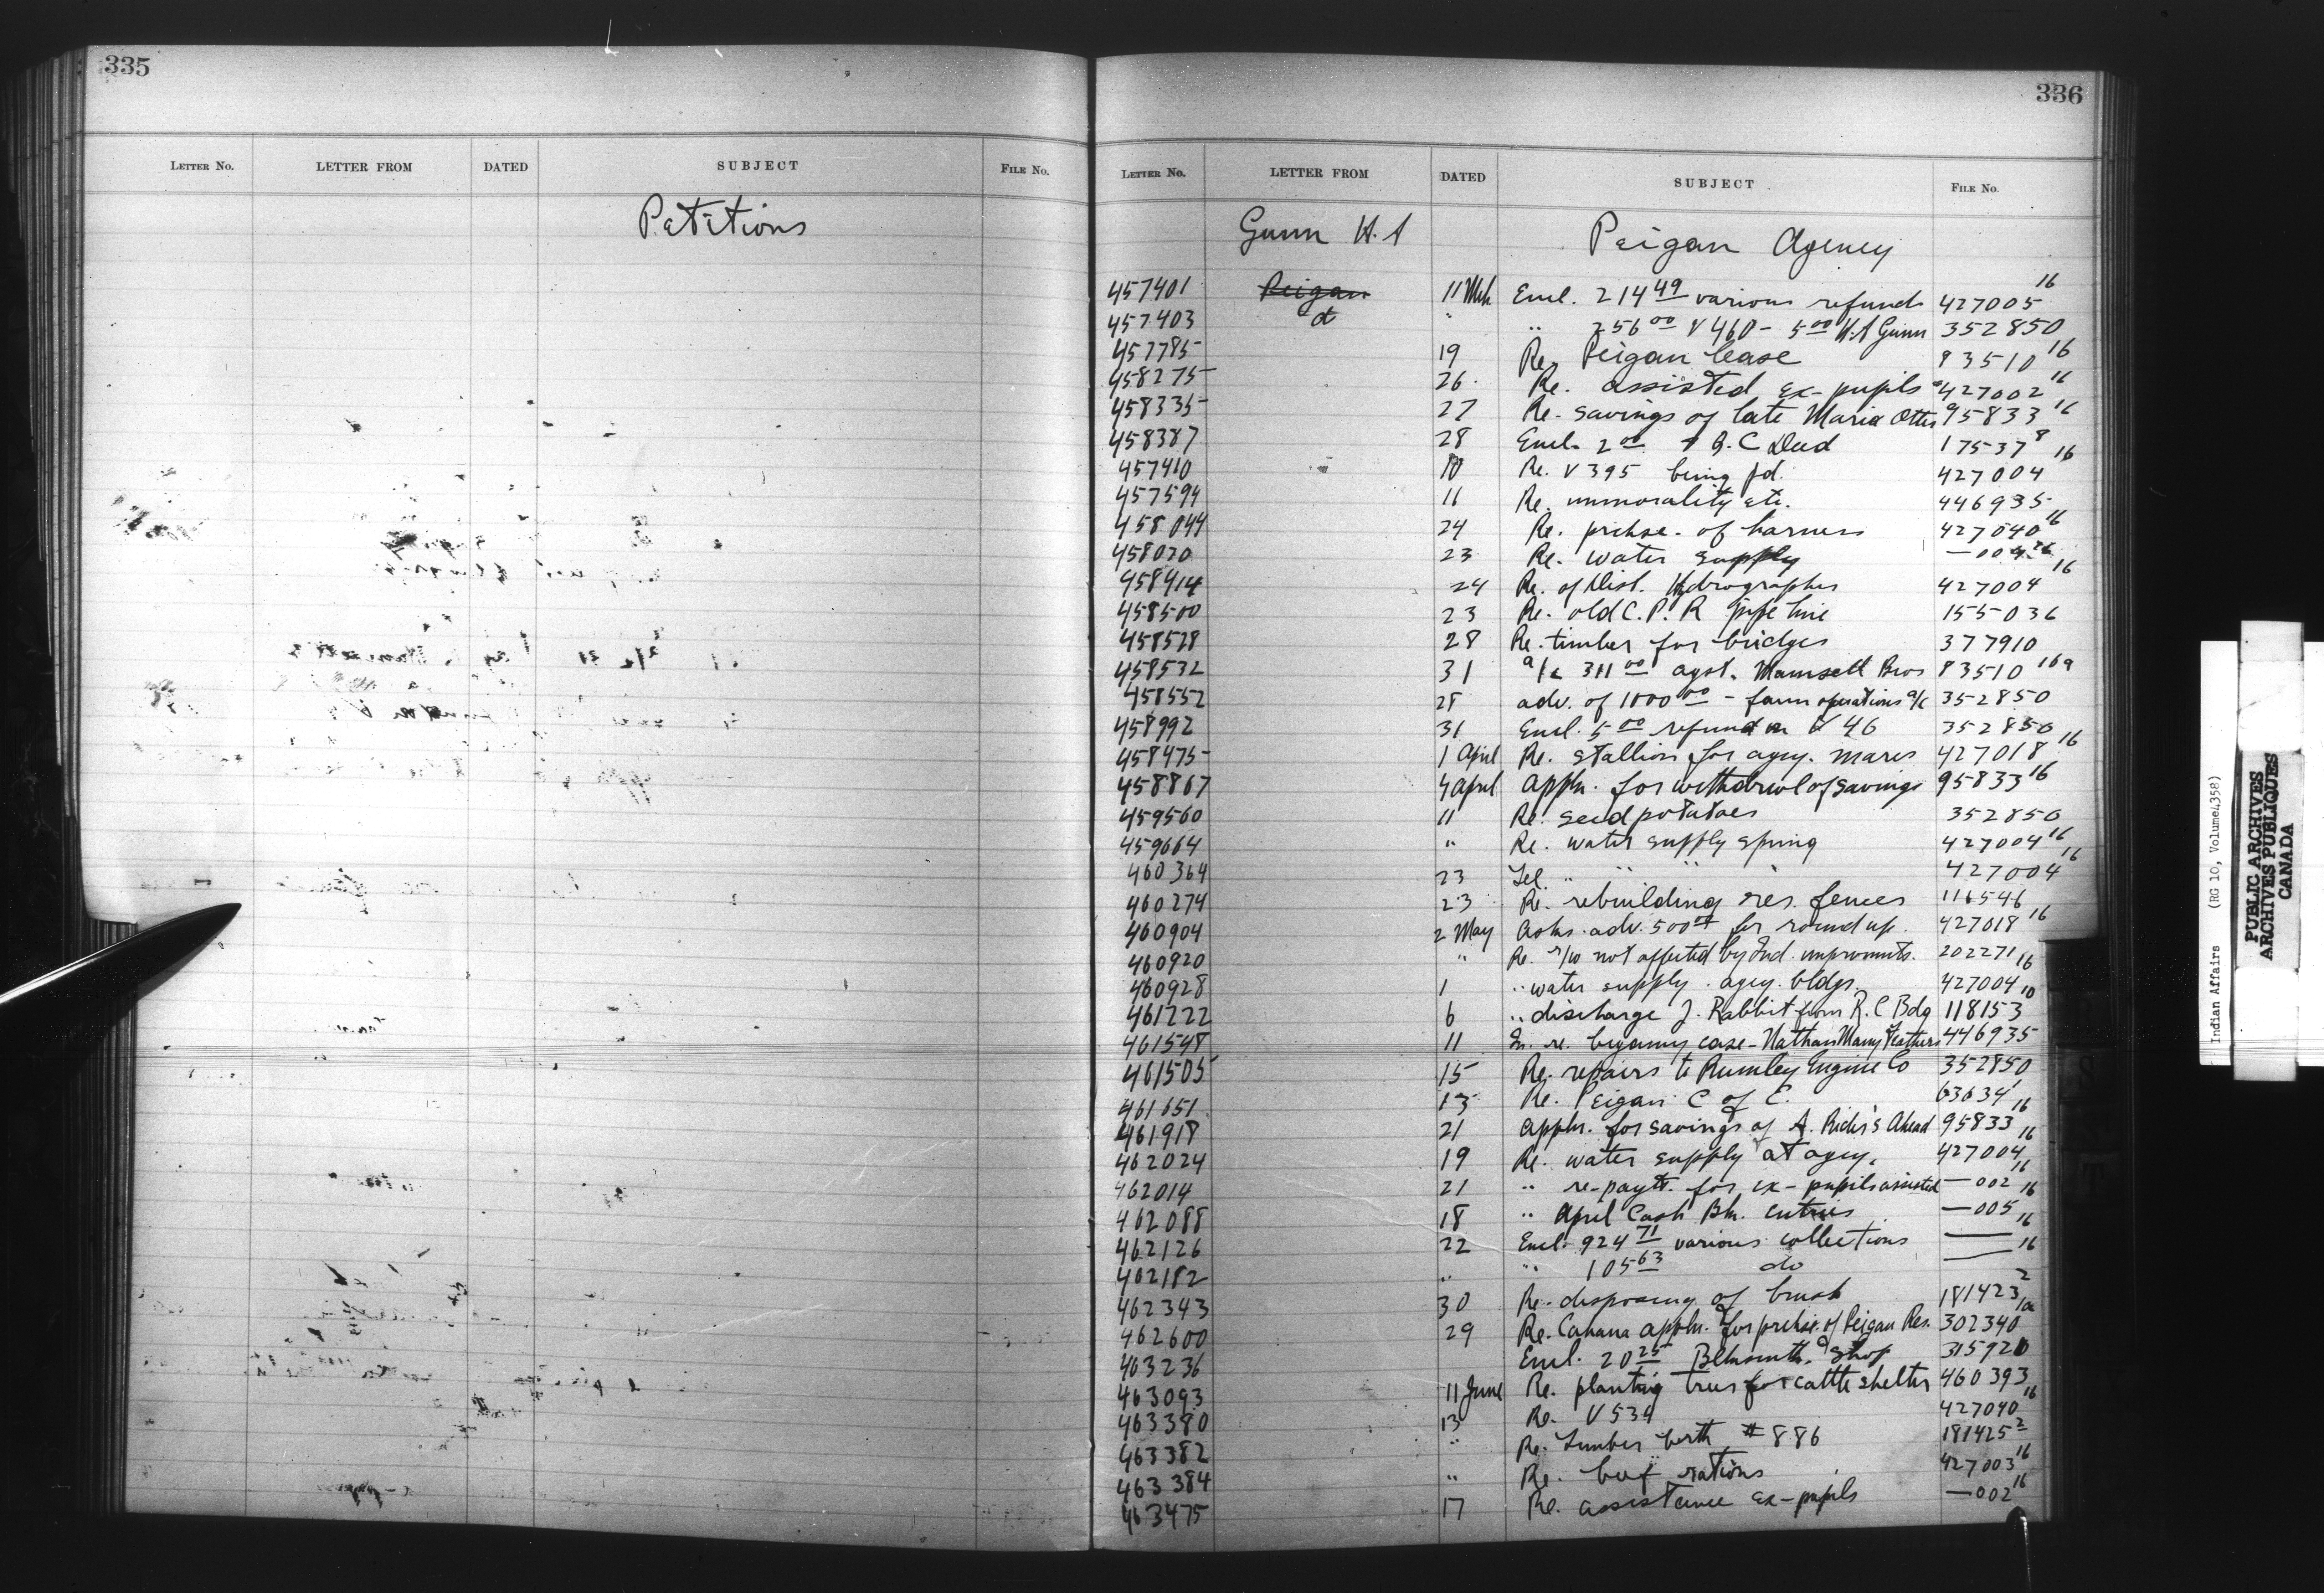 335
LETTER No. LETTER FROM DATED SUBJECT FILE No.
Petitions
336
LETTER No. LETTER FROM DATED SUBJECT FILE No.
Gunn H. A Peigan Agency
457401 Peigan 11 Mch Encl. 214 49 various refunds 427005 16
457403 do " " 256 00 V 460 - 5 00 H. A Gunn 352850
457785 19 Re. Peigan lease 83510 16
458275 26. Re. assisted ex-pupils 427002 16
458335 27 Re. savings of late Maria Otter 95833 16
458387 28 Encl. 2 00 & Q. C Deed 17537 8
457410 10 Re. V 395 being pd. 427004 16
457594 11 Re. immorality etc. 446935
458044 24 Re. prchse. of harness 427040 16
458020 23 Re. water supply —004 16
458414 24 Re. of Dist. Hydrographer 427004 16
458500 23 Re. old C. P. R pipe line 155036
458528 28 Re. timber for bridges 377910
458532 31 a/c 311 00 agst. Maunsell Bros 83510 16a
458552 28 adv. of 1000 00 - farm operations a/c 352850
458992 31 Encl. 5 00 refund on V 46 352850
458475 1 April Re. stallion for agcy. mares 427018 16
458867 4 April Appln. for withdrawl of savings 95833 16
459560 11 Re. seed potatoes 352850
459664 " Re. water supply spring 427004 16
460364 23 Tel. " " " 427004 16
460274 23 Re. rebuilding res. fences 116546
460904 2 May Asks adv. 500 00 for round up. 427018 16
460920 " Re. r/w not affected by Ind. improvmnts. 202271
460928 1 " water supply agcy. bldgs. 427004 16
461222 6 " discharge J. Rabbit from R. C Bdg 118153 10
461548 11 In. re. bigamy case - Nathan Many Feathers 446935
461505 15 Re. repairs to Rumley Engine Co 352850
461651 13 Re. Peigan C of C. 63634 1
461918 21 Appln. for savings of A. Rider's Ahead 95833 16
462024 19 Re. water supply at agcy. 427004 16
462014 21 " re-payt. for ex-pupils assisted —002 16
462088 18 " April Cash Bk. entries —005 16
462126 22 Encl. 924 71 various collections — 16
462182 " " 105 63 do — 16
462343 30 Re. disposing of brush 181423 2
462600 29 Re. Canana appln. for prchse. of Peigan Res. 302340 1a
463236 Encl. 20 25 Blksmith. Shop 315920
463093 11 June Re. planting trees for cattle shelter 460393
463380 13 Re. V 534 427040 16
463382 " Re. Timber berth # 886 181425 2
463384 " Re. beef rations 427003 16
463475 17 Re. assistance ex-pupils —002 16
Indian Affairs (RG 10, Volume 4358)
PUBLIC ARCHIVES
ARCHIVES PUBLIQUES
CANADA